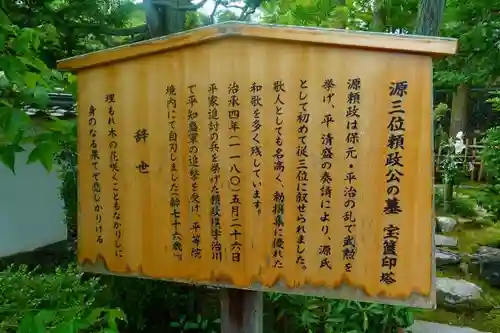 源三位頼政公の墓 宝篋印塔
源頼政は保元・平治の乱で武勲を
挙げ、平清盛の奏請により、源氏
として初めて従三位に叙せられました。
歌人としても名高く、勅撰集に優れた
和歌を多く残しています。
治承四年(一一八〇)五月二十六日
平家追討の兵を挙げた頼政は宇治川
で平知盛軍の追撃を受け、平等院
境内にて自刃しました(齢七十六歳)。
辞世
埋もれ木の花咲くこともなかりしに
身のなる果てぞ悲しかりける